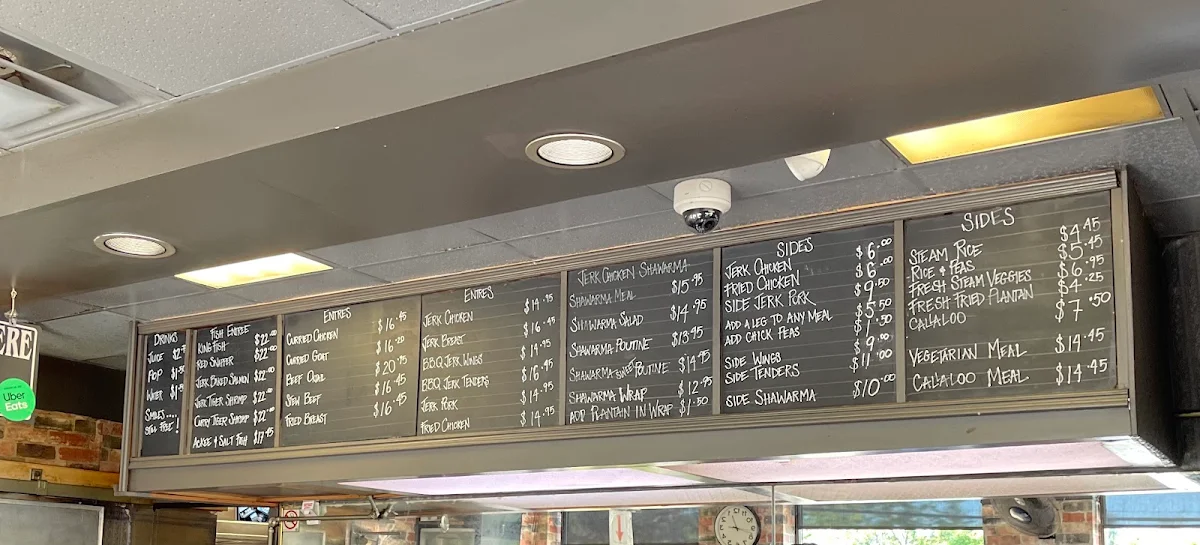 ERE
Uber
Eats
DRINKS
JUICE
POP
WATER
SMILES....
STILL FREE!
FISH ENTREE
KING FISH $22.00
RED SNAPPER $22.00
JERK FRIED SALMON $22.00
JERK TIGER SHRIMP $22.00
CURRY TIGER SHRIMP $22.00
ACKEE & SALT FISH $17.45
ENTRES
CURRIED CHICKEN $16.45
CURRIED GOAT $16.20
BEEF OXTAIL $20.75
STEW BEEF $16.45
FRIED BREAST $16.45
ENTRES
JERK CHICKEN $14.95
JERK BREAST $16.45
BBQ JERK WINGS $14.95
BBQ JERK TENDERS $16.45
JERK PORK $14.95
FRIED CHICKEN $14.95
JERK CHICKEN SHAWARMA
SHAWARMA MEAL $15.95
SHAWARMA SALAD $14.95
SHAWARMA POUTINE $13.95
SHAWARMA SWEET POUTINE $14.95
SHAWARMA WRAP $12.95
ADD PLANTAIN IN WRAP $1.50
SIDES
JERK CHICKEN $6.00
FRIED CHICKEN $6.00
SIDE JERK PORK $9.50
ADD A LEG TO ANY MEAL $5.50
ADD CHICK PEAS $1.50
SIDE WINGS $9.00
SIDE TENDERS $11.00
SIDE SHAWARMA $10.00
SIDES
STEAM RICE $4.45
RICE & PEAS $5.45
FRESH STEAM VEGGIES $6.95
FRESH FRIED PLANTAIN $4.25
CALALOO $7.50
VEGETARIAN MEAL $14.45
CALALOO MEAL $14.45